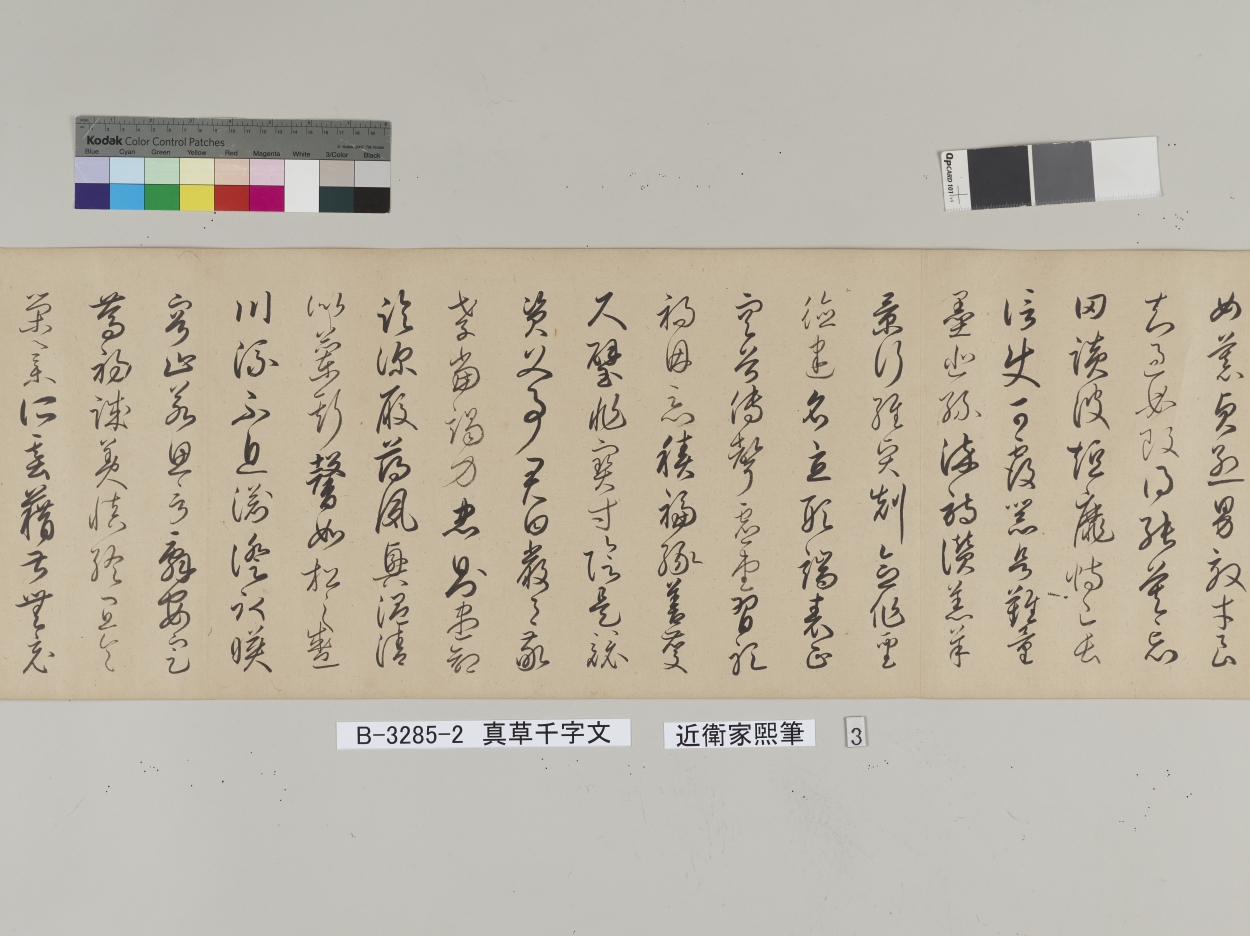 Kodak Color Control Patches
Blue Cyan Green Yellow Red Magenta White 3/Color Black
OpCARD 101
女慕貞絜男效才良
知過必改得能莫忘
罔談彼短靡恃己長
信使可覆器欲難量
墨悲絲染詩讚羔羊
景行維賢剋念作聖
德建名立形端表正
空谷傳聲虛堂習聽
禍因惡積福緣善慶
尺璧非寶寸陰是競
資父事君曰嚴與敬
孝當竭力忠則盡命
臨深履薄夙興溫清
似蘭斯馨如松之盛
川流不息淵澄取暎
容止若思言辭安定
篤初誠美慎終宜令
榮業所基藉甚無竟
B-3285-2 真草千字文
近衛家熙筆
3